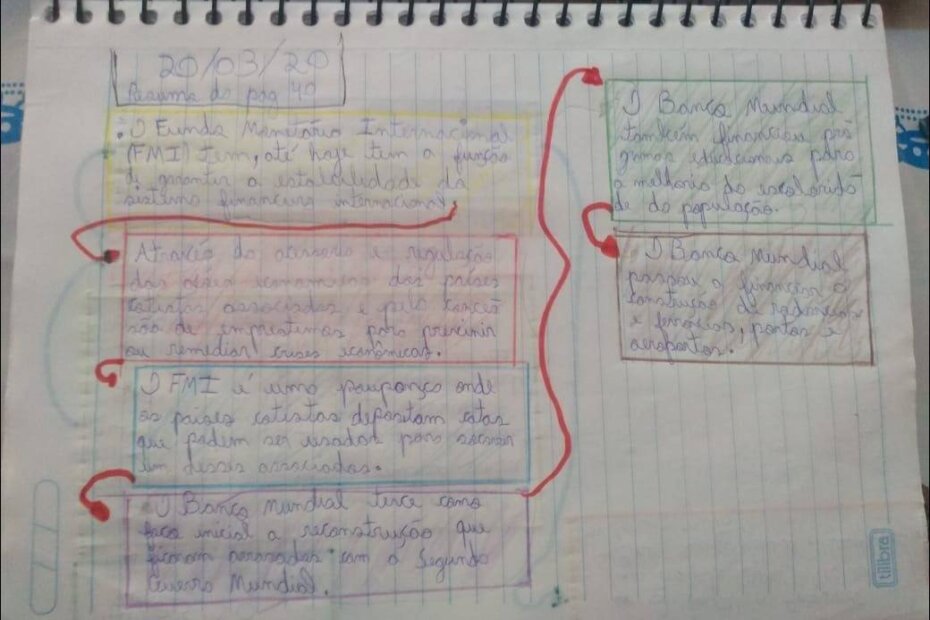 20/03/20
Resumo do pag 40
O Fundo Monetário Internacional
(FMI) tem, até hoje tem a função
de garantir a estabilidade do
sistema financeiro internacional
Através do acessoria e regulação
das ações economicas dos países
cotistas associados e pela conces
são de emprestimos para previnir
ou remediar crises econômicas.
O FMI é uma poupança onde
os países cotistas depositam cotas
que podem ser usados para socorrer
um desses associados.
O Banco mundial teve como
foco inicial a reconstrução que
ficaram arrasadas com a Segunda
Guerra Mundial.
O Banco Mundial
também financiou pro
gramas educacionais para
a melhoria da escolarida
de da população.
O Banco Mundial
passou a financiar a
construção de rodovias
e ferrovias, portos e
aeroportos.
tilibra